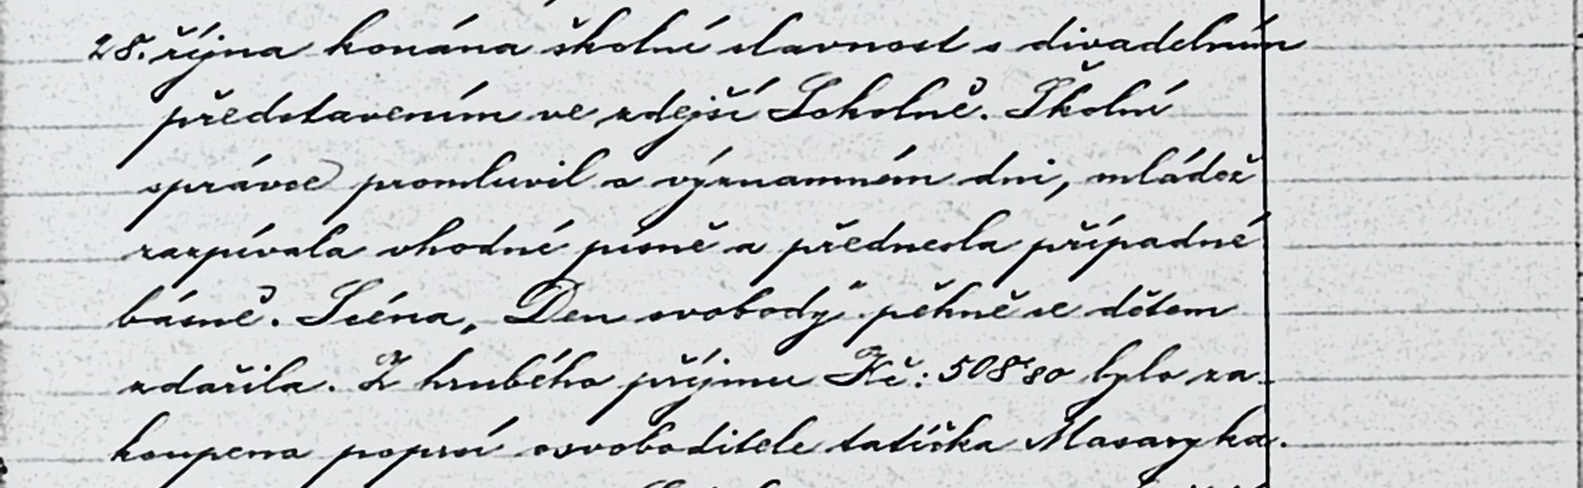 28. října konána školní slavnost s divadelním
představením ve zdejší Sokolně. Školní
správce promluvil o významném dni, mládež
zazpívala vhodné písně a přednesla případné
básně. Scéna „Den svobody" pěkně se dětem
zdařila. Z hrubého příjmu Kč: 508'80 bylo za-
koupena poprsí osvoboditele tatíčka Masaryka.